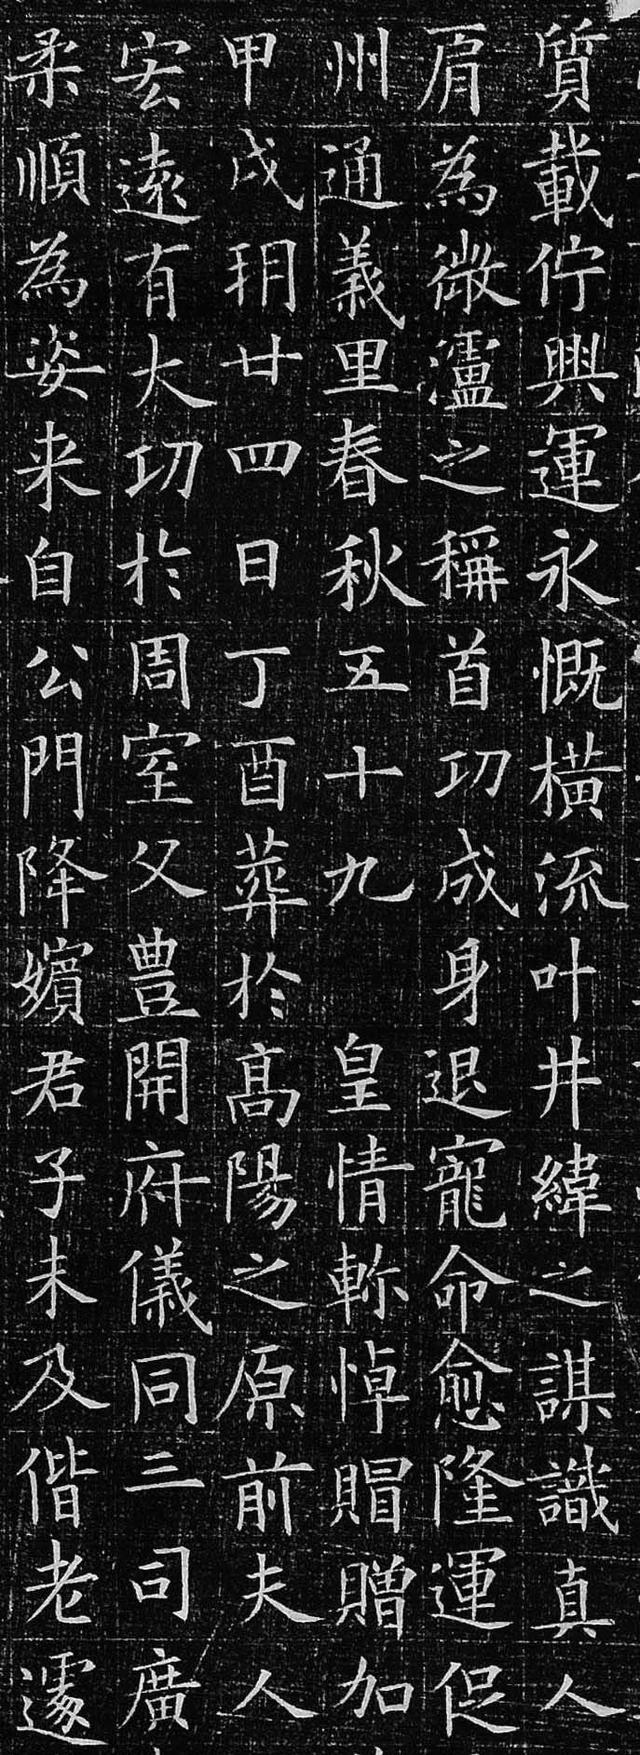 質載佇興運永慨橫流叶井緯之謀識真人
肩為微瀘之稱首功成身退寵命愈隆運促
州通義里春秋五十九皇情軫悼賵贈加
甲戌玥廿四日丁酉葬於高陽之原前夫人
宏遠有大功於周室父豊開府儀同三司廣
柔順為姿来自公門降嬪君子未及偕老遽